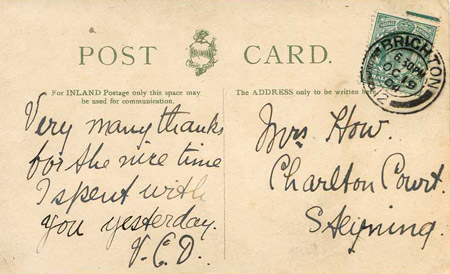 POST CARD.
For INLAND Postage only this space may
be used for communication.
The ADDRESS only to be written here
Very many thanks
for the nice time
I spent with
you yesterday.
V.C.D.
Mrs How.
Charlton Court.
Steyning.
BRIGHTON
6.30PM
OC 9